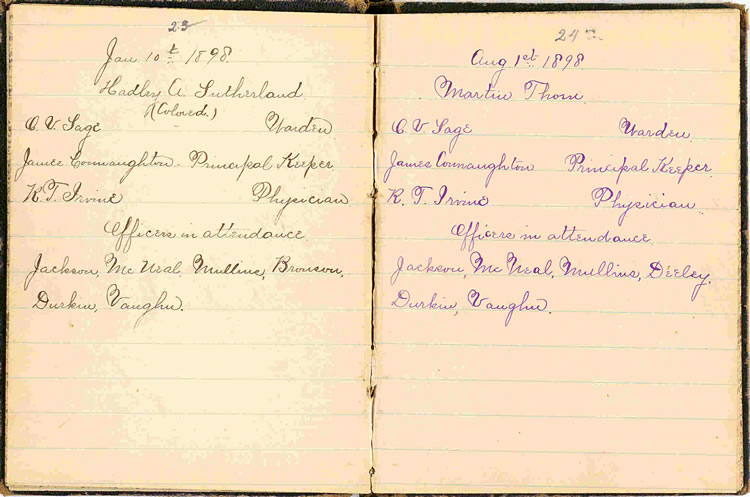 23
Jan 10th 1898.
Hadley A. Sutherland
(Colored.)
C. V. Sage Warden
James Connaughton Principal Keeper
R. T. Irvine Physician
Officers in attendance
Jackson, Mc Neal, Mullins, Bronson,
Durkin, Vaughn.
24
Aug 1st 1898
Martin Thorn.
C. V. Sage Warden
James Connaughton Principal Keeper
R. T. Irvine Physician.
Officers in attendance
Jackson, Mc Neal, Mullins, Deeley,
Durkin, Vaughn.